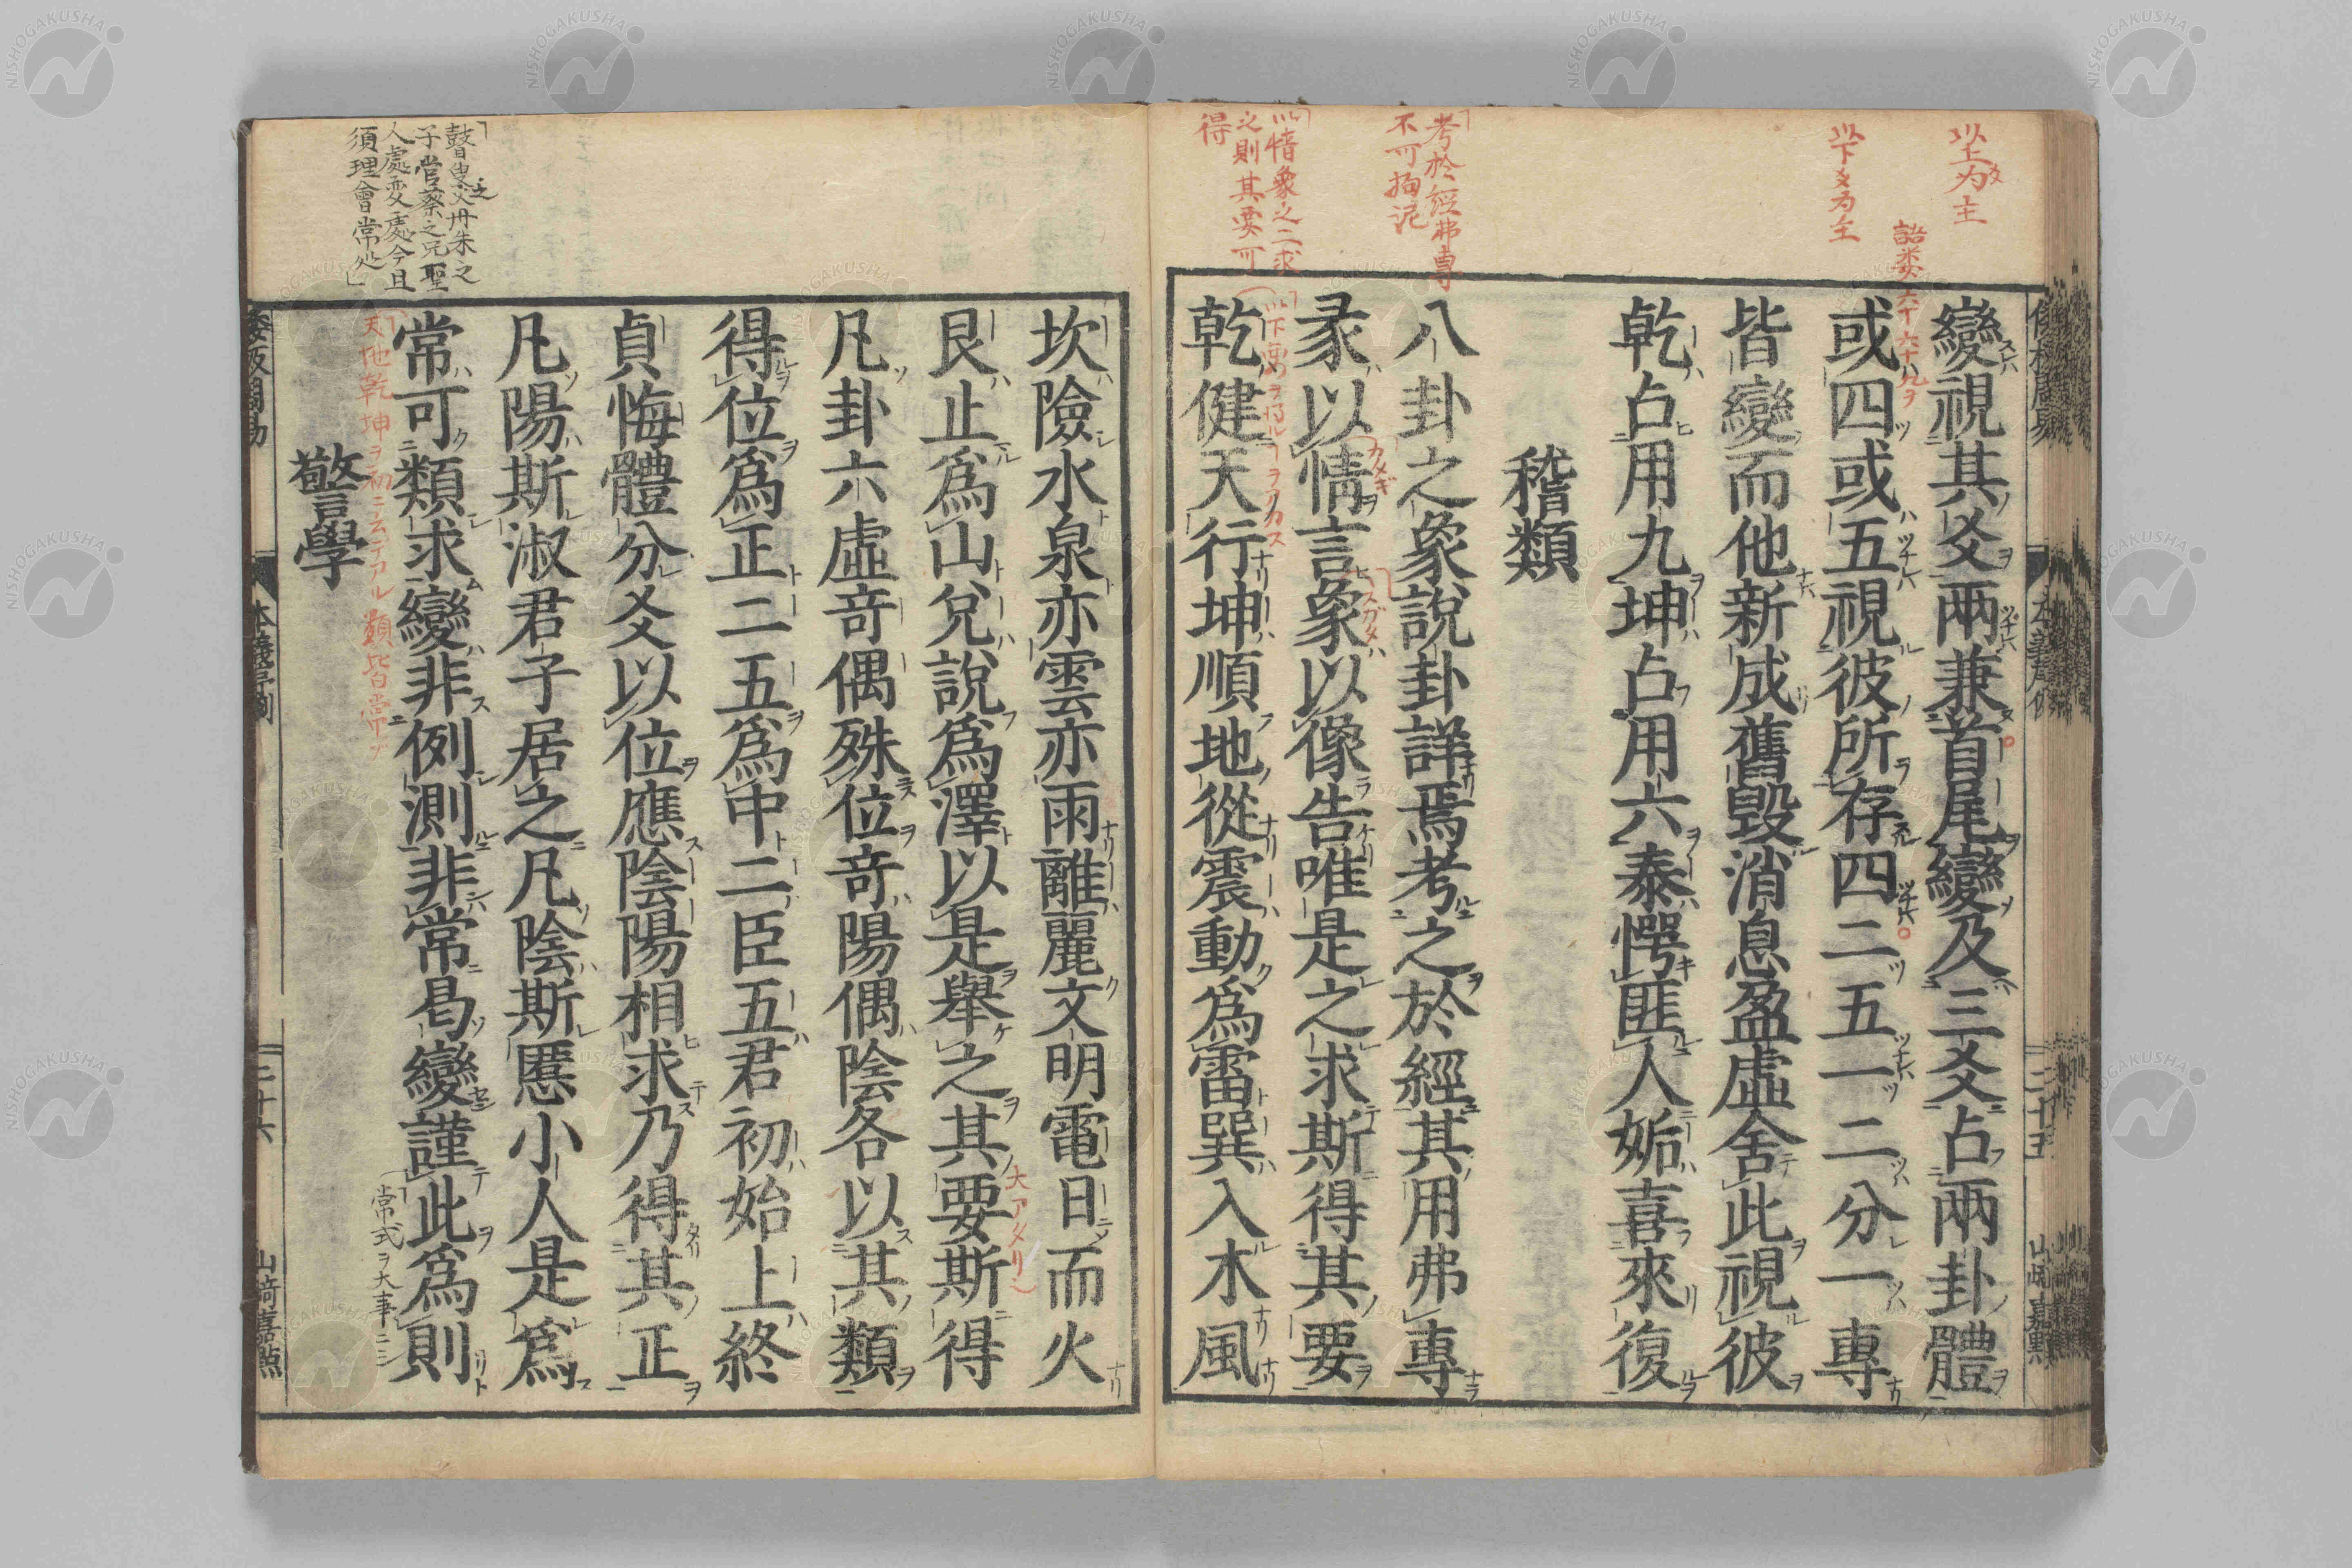 以上爻为主
語類六十六十九ヲ
以下爻为主
考於經弗專
不可拘泥
以情象之二求
之則其要可
得
變視其爻兩兼首尾變及三爻占兩卦體
或四或五視彼所存四二五一二分一專
皆變而他新成舊毀消息盈虛舍此視彼
乾占用九坤占用六泰愕匪人姤喜來復
稽類
八卦之象說卦詳焉考之於經其用弗專
彖以情言象以像告唯是之求斯得其要
乾健天行坤順地從震動為雷巽入木風
二十五
山崎嘉點
瞽叟之父丹朱之
子管蔡之兄聖
人處変處今且
須理會常処
坎險水泉亦雲亦雨離麗文明電日而火
艮止為山兌說為澤以是舉之其要斯得
凡卦六虛奇偶殊位奇陽偶陰各以其類
得位為正二五為中二臣五君初始上終
貞悔體分爻以位應陰陽相求乃得其正
凡陽斯淑君子居之凡陰斯慝小人是為
常可類求變非例測非常曷變謹此為則
天地乾坤ヲ初ニ云テアル類皆常ナ
常式ヲ大事ニ
警學
二十六
山崎嘉點
NISHOGAKUSHA